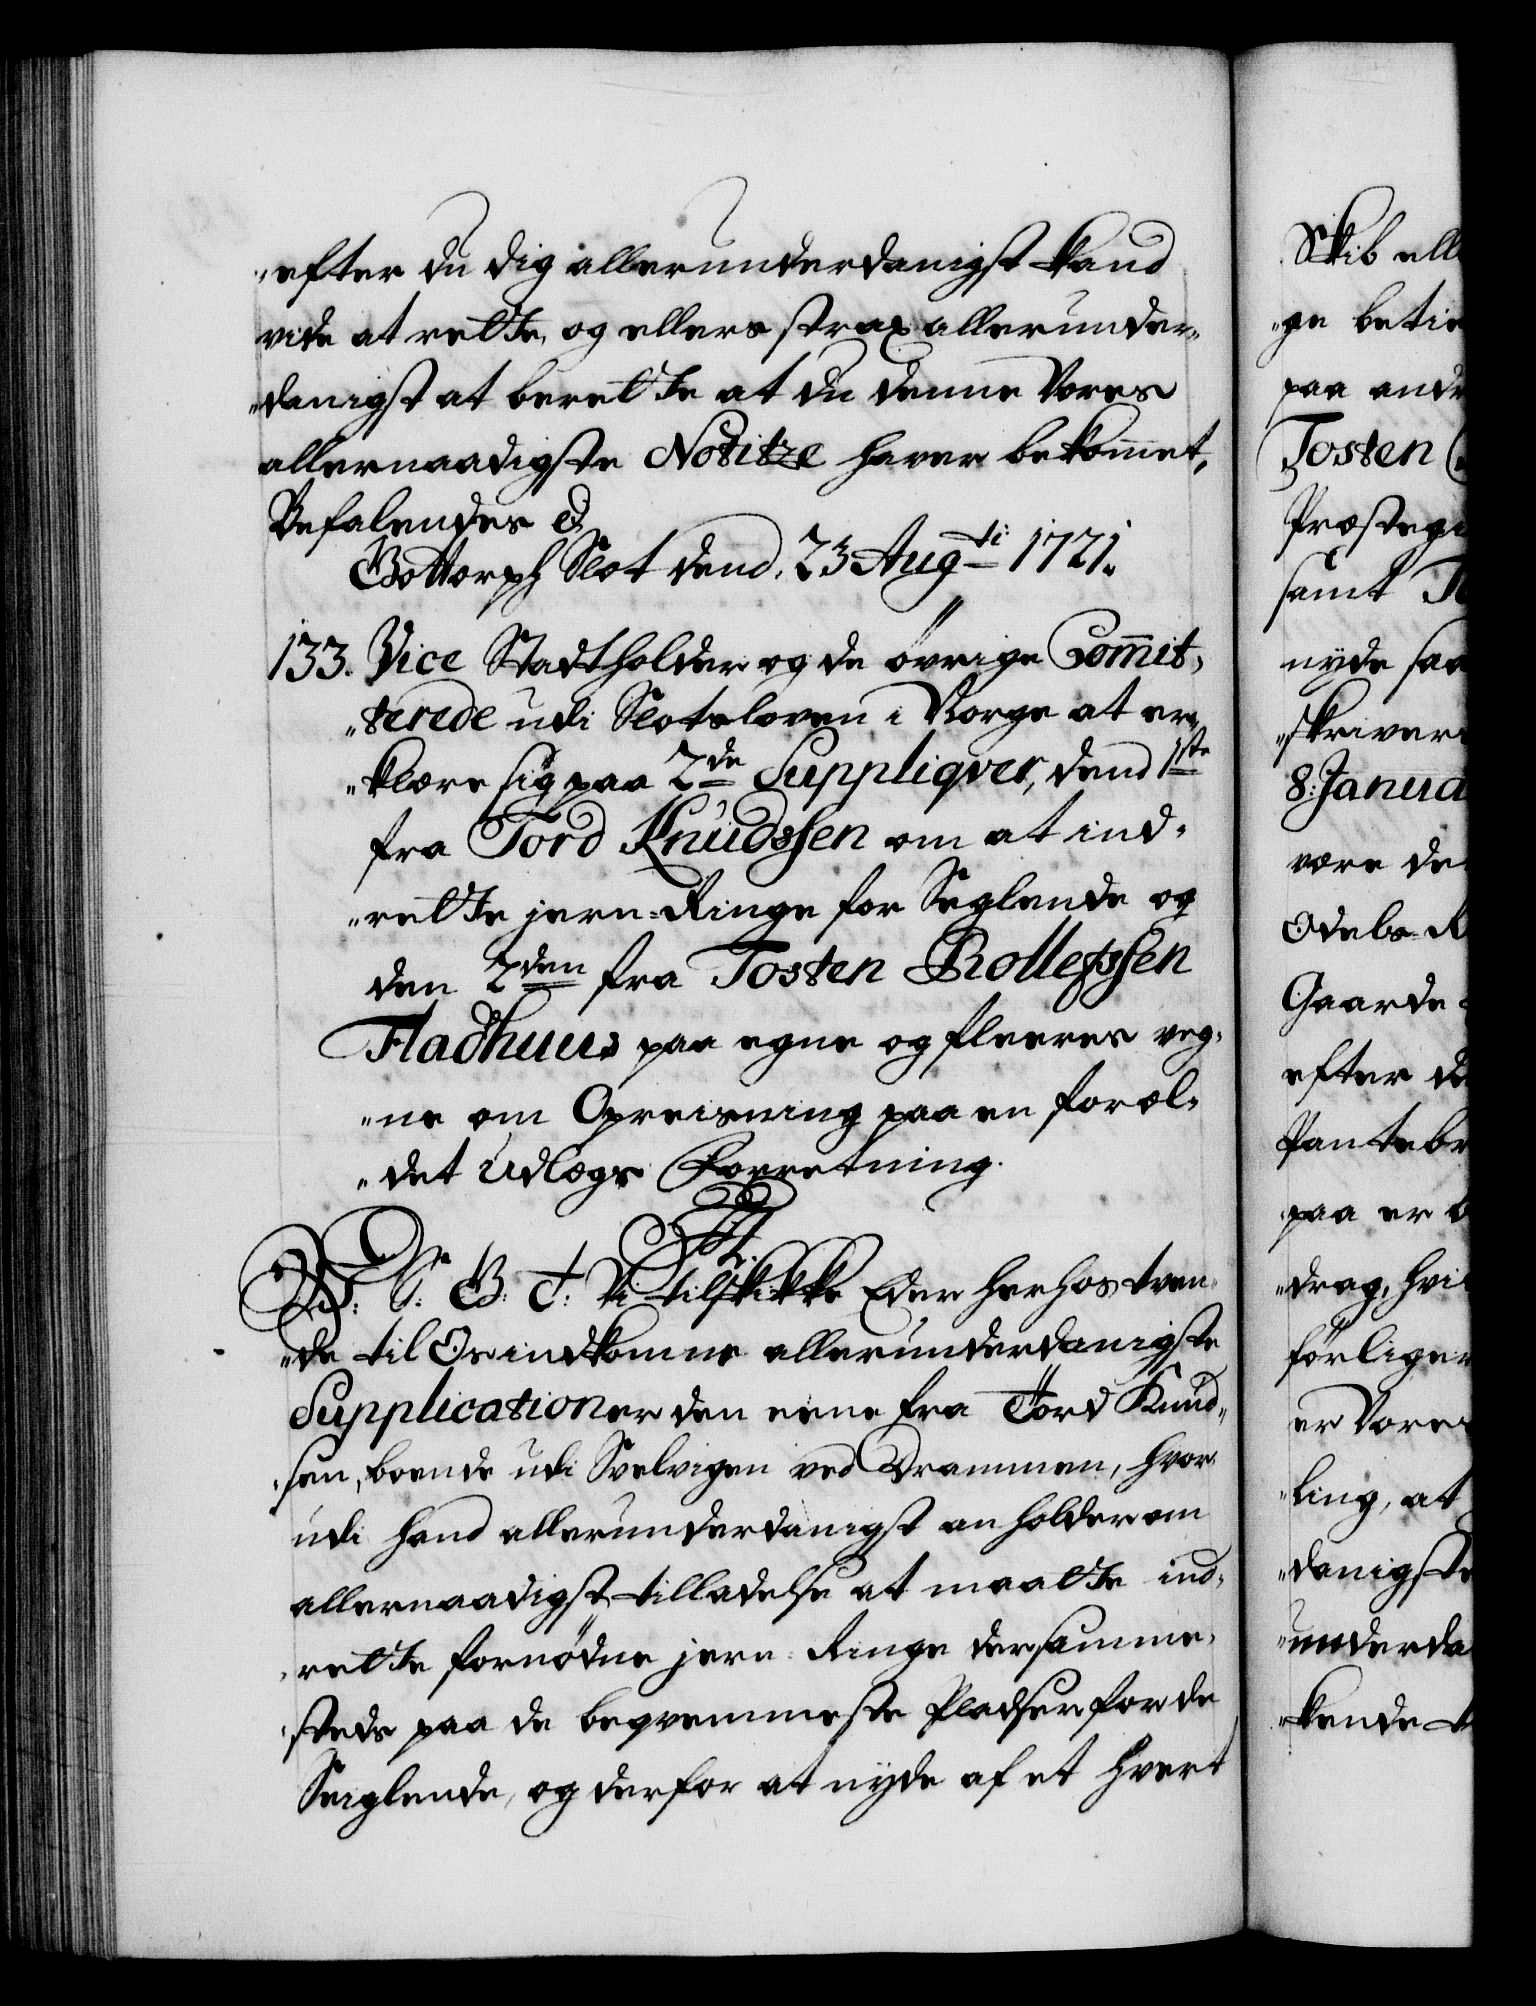 "efter du dig allerunderdanigst kand
vide at rette, og ellers strax allerunder-
"danigst at berette at du denne Vores
allernaadigste Notitze haver bekom̄et,
Befalendes
Gottorph Slot dend. 23 Augti 1721.
133. Vice Stadtholder og de øvrige Com̄it-
"terede udi Slotsloven i Norge at er-
"klære sig paa 2de Suppliqver, dend 1ste
fra Tord Knudssen om at ind-
"rette jern-Ringe for Seglende og
den 2den fra Tosten Rollefssen
Fladhuus paa egne og fleeres veg-
"ne om Opreisning paa en foræl-
"det Udlægs Forretning.
F. 4.
W: S: G: T: Vi tilskikke Eder herhos tven-
"de til Os indkomne allerunderdanigste
Supplicationer den eene fra Tord Knud-
"sen, boende udi Svelvigen ved Drammen, hvor-
udi hand allerunderdanigst anholder om
allernaadigst tilladelse at maatte ind-
"rette fornødne jern-Ringe dersamme-
"steds paa de beqvemmeste Pladser for de
Seiglende, og derfor at nyde af et hvert
Skib ell
"ge betie
paa andr
Tosten
Præstegi
samt
nyde saa
"skriver
8: Janua
være de
Odels-R
Gaarde
efter d
Pantebr
paa er
"drag, hvi
førliger
er Vores
"ling, at
"danigste
"underda
"kende